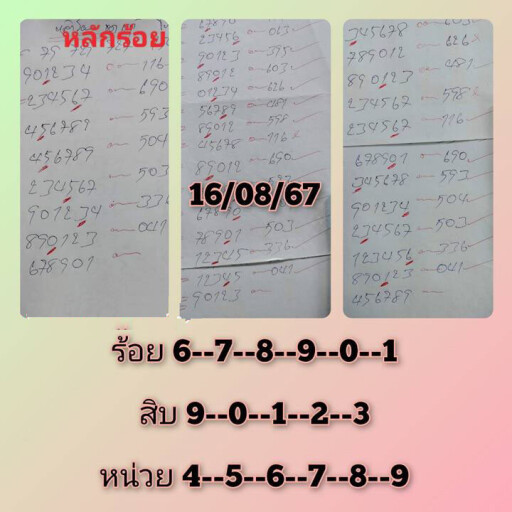 หลักร้อย
901234 116
234567 690
456789 593
456789 504
234567 503
901234 336
890123 041
678901
23456 063
90123 395
89012 603
01234 626
56789 481
89012 598
45678 116
89012 690
16/08/67
67890
78901 503
12345 336
12345 041
90123
345678
789012 626
890123 481
234567 598
234567 116
678901 690
345678 593
901234 504
234567 503
123456 336
890123 041
456789
ร้อย 6--7--8--9--0--1
สิบ 9--0--1--2--3
หน่วย 4--5--6--7--8--9